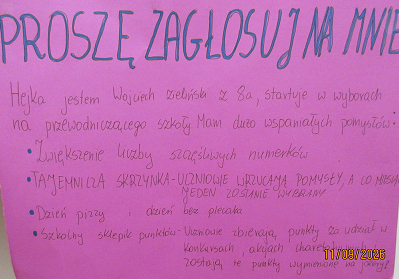 PROSZĘ ZAGŁOSUJ NA MNIE
Hejka jestem Wojciech Zieliński z 8a, startuje w wyborach
na przewodniczącego szkoły. Mam dużo wspaniałych pomysłów:
• Zwiększenie liczby szczęśliwych numerków
• TAJEMNICZA SKRZYNKA - UCZNIOWIE WRZUCAJĄ POMYSŁY, A CO MIESIĄC
JEDEN ZOSTANIE WYBRANY
• Dzień pizzy i dzień bez plecaka
• Szkolny sklepik punktów - Uczniowie zbierają punkty za udział w
konkursach, akcjach charytatywnych
zostają te punkty wymienione na
11/09/2025